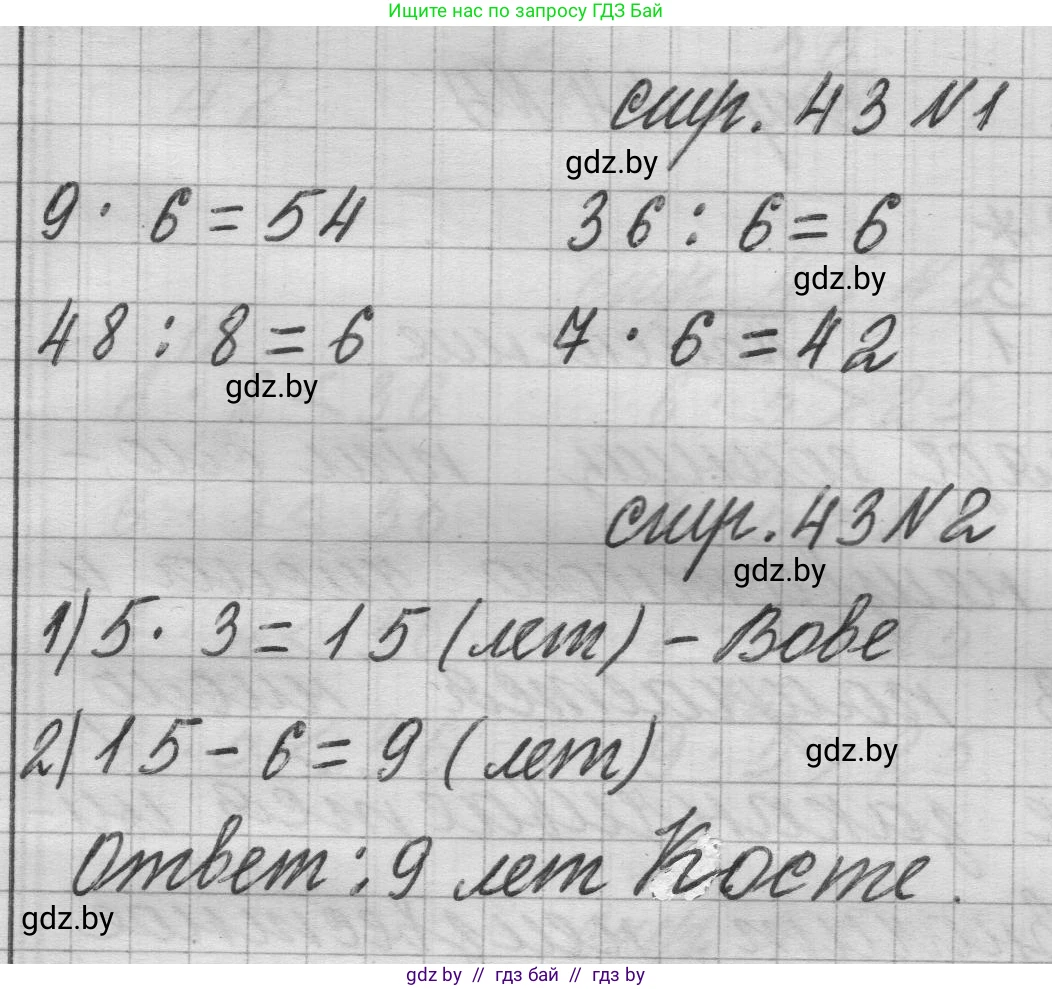 Ищите нас по запросу ГДЗ Бай
стр. 43 №1
gdz.by
9 · 6 = 54 36 : 6 = 6
gdz.by
48 : 8 = 6 7 · 6 = 42
gdz.by
стр. 43 №2
gdz.by
1) 5 · 3 = 15 (лет) – Вове
2) 15 – 6 = 9 (лет)
gdz.by
Ответ : 9 лет Косте .
gdz.by
gdz by // гдз бай // гдз by